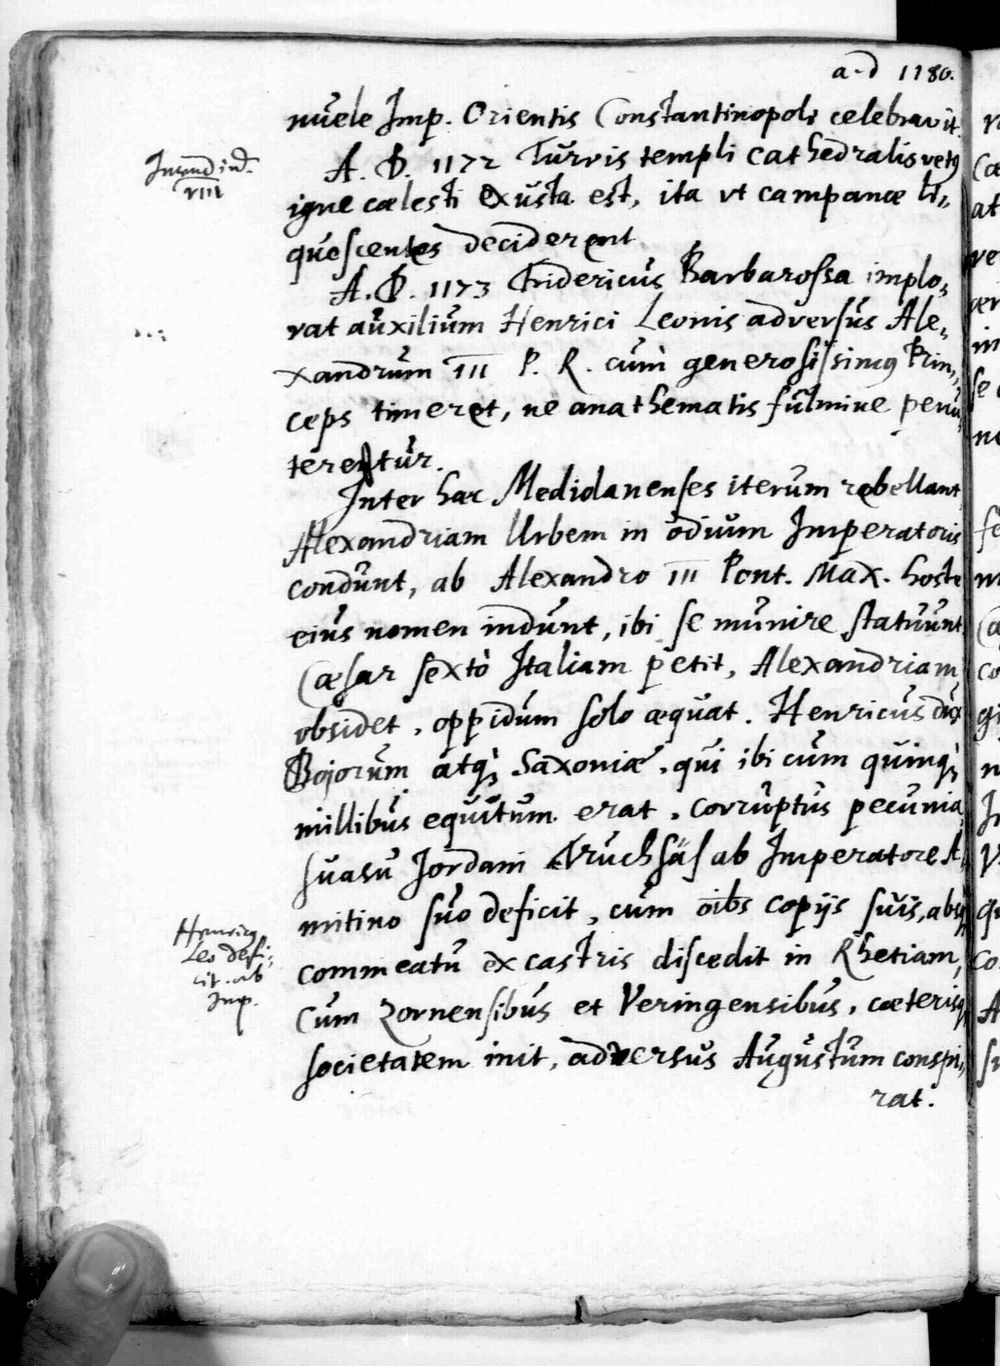 a. d 1180.
nuele Imp. Orientis Constantinopoli celebravit
A. D. 1172 Turris templi cathedralis vetus
igne cælesti exusta est, ita vt campanæ li„
quescentes deciderent
A. D. 1173 Fridericus Barbarossa implo„
rat auxilium Henrici Leonis adversus Ale„
xandrum III P. R. cum generosissimus Prin„
ceps timeret, ne anathematis fulmine percu„
teretur.
Inter hæc Mediolanenses iterum rebellant
Alexandriam Urbem in odium Imperatoris
condunt, ab Alexandro III Pont. Max. hoste
eius nomen indunt, ibi se munire statuunt
Cæsar sexto Italiam petit, Alexandriam
obsidet, oppidum solo æquat. Henricus dux
Bojorum atq; Saxoniæ, qui ibi cum quinq;
millibus equitum erat, corruptus pecunia
suasu Jordani Truchsäs ab Imperatore A„
mitino suo deficit, cum oibs copijs suis, absq;
commeatu ex castris discedit in Rhetiam,
cum Zornensibus et Veringensibus, cæterisq;
societatem init, adversus Augustum conspi„
rat.
VIII
Henricus
Leo defi„
cit ab
Imp.